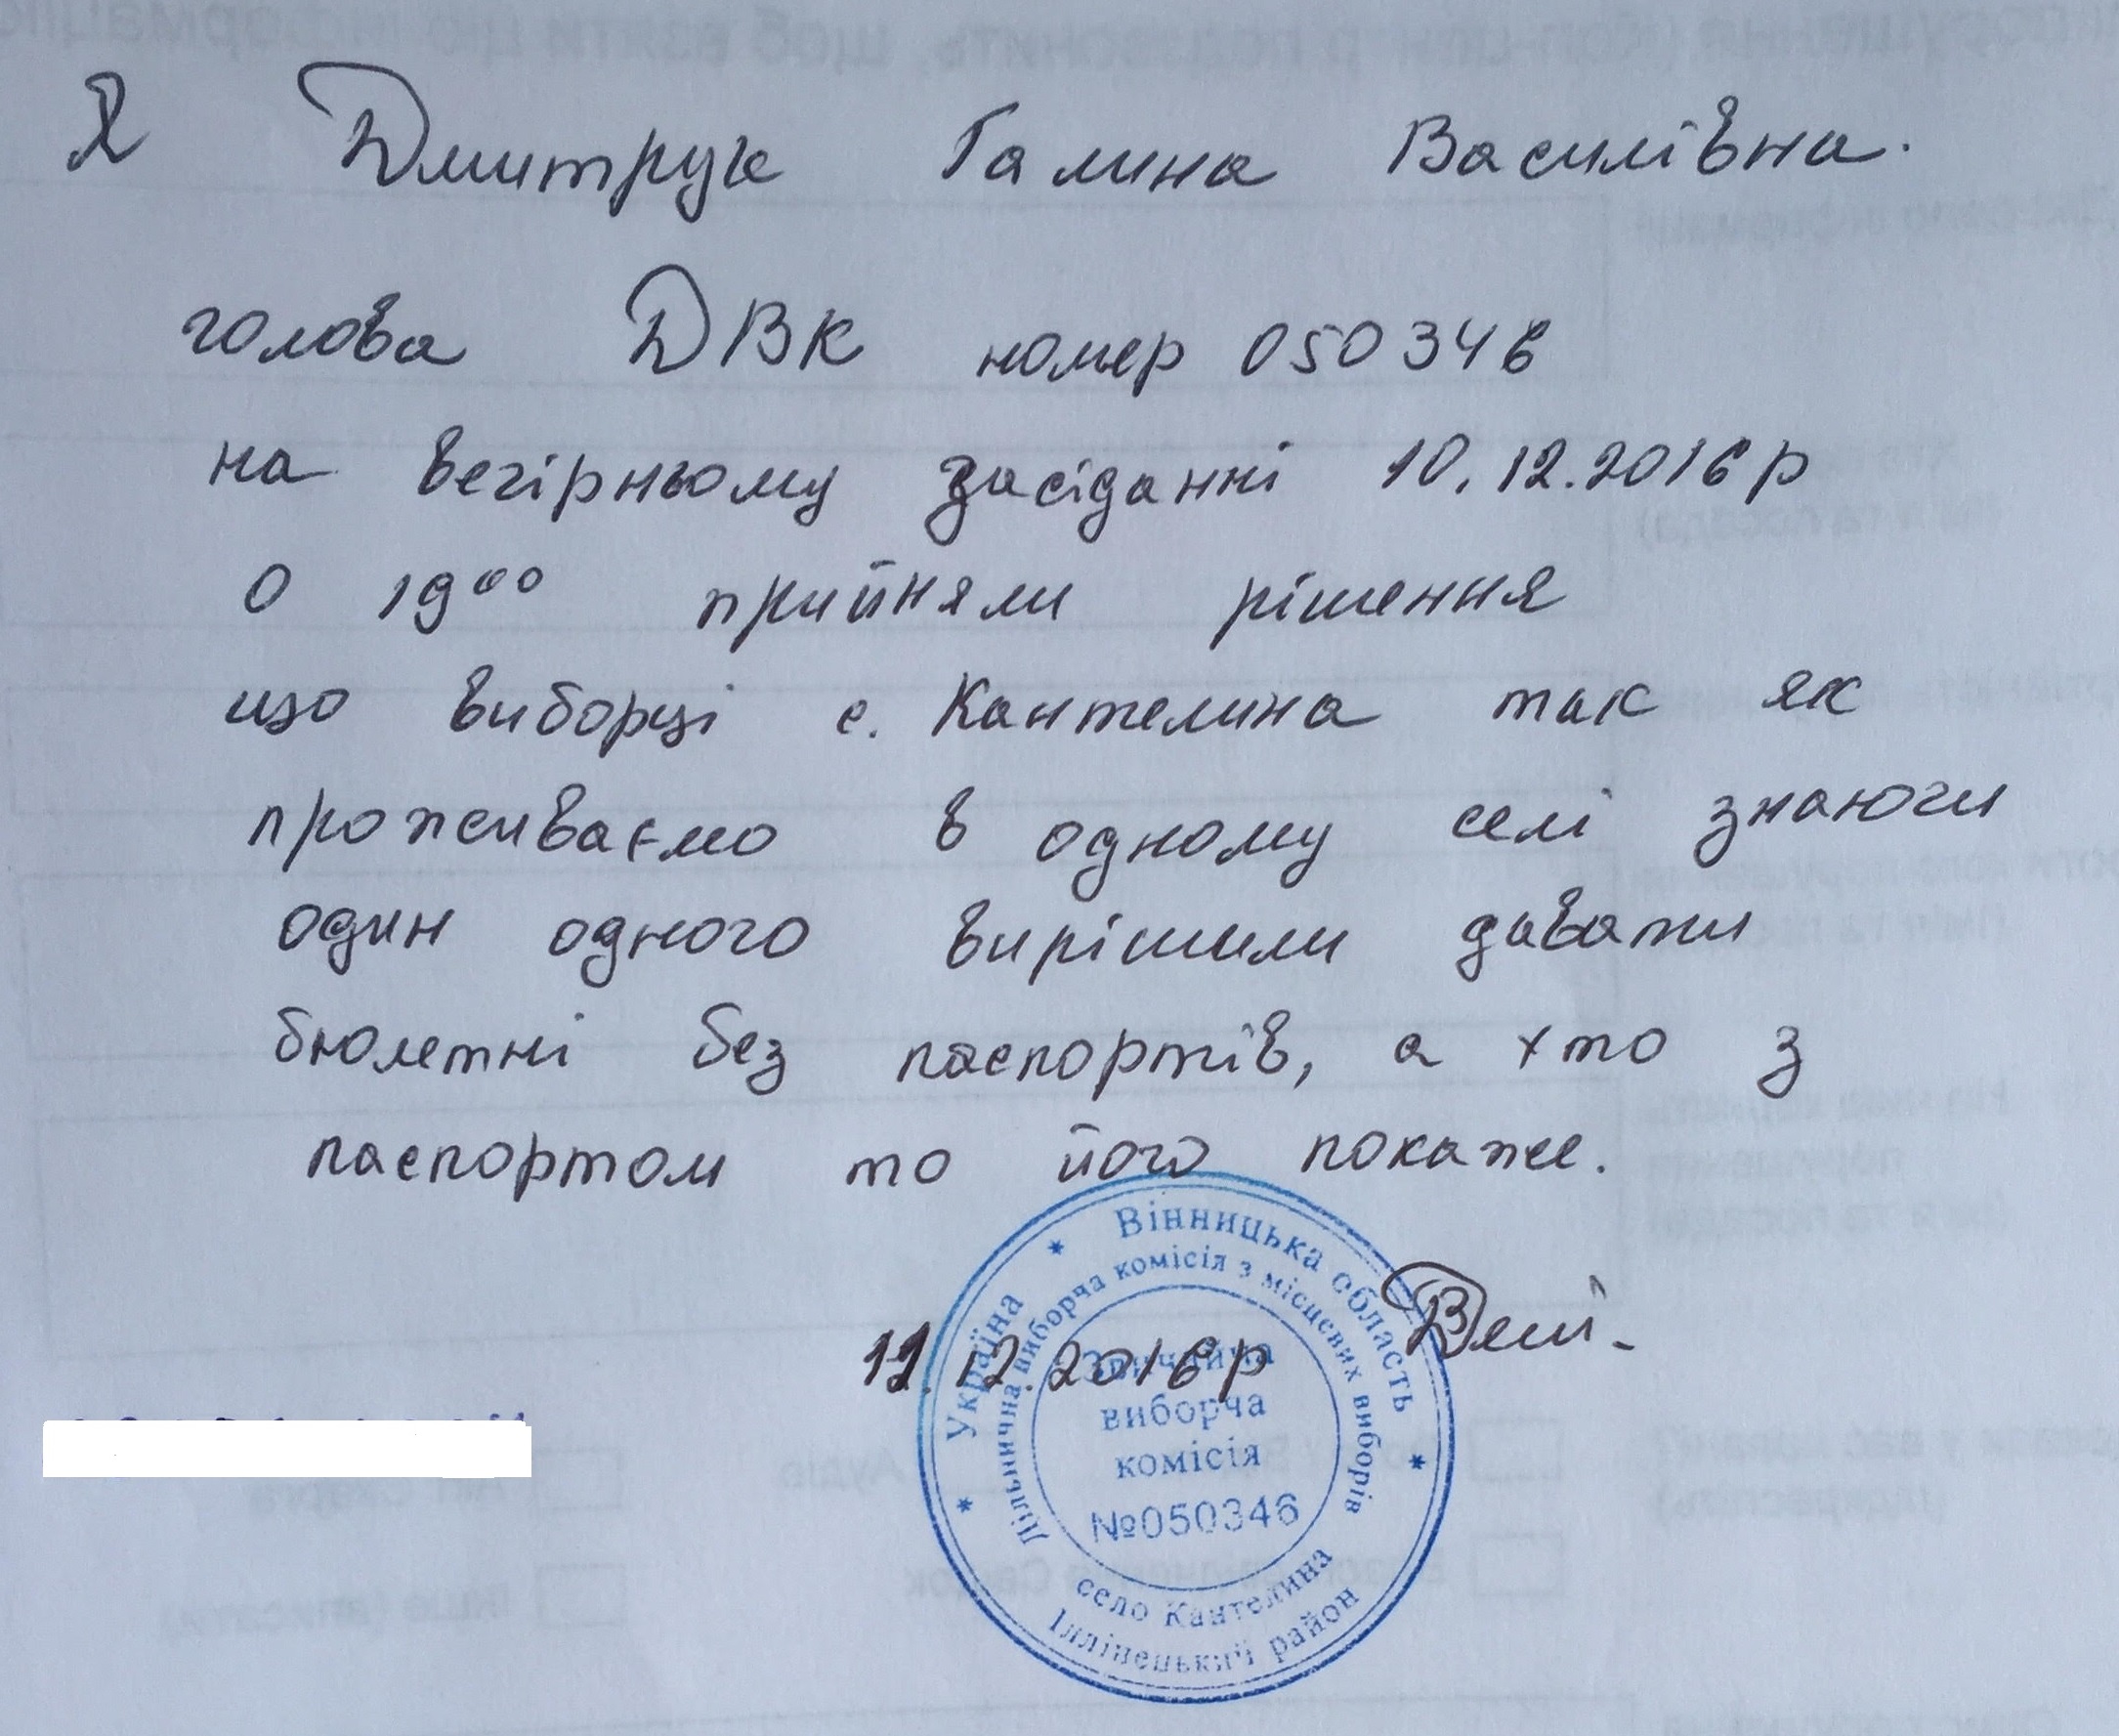 Я Дмитрук Галина Василівна.
голова ДВК номер 050346
на вечірньому засіданні 10.12.2016р
о 19⁰⁰ прийняли рішення
що виборці с. Кантелина так як
проживаємо в одному селі знаючи
один одного вирішили давати
бюлетні без паспортів, а хто з
паспортом то його покаже.
11.12.2016р
* Україна * Вінницька область *
Дільнична виборча комісія з місцевих виборів
Звичайна
виборча
комісія
№050346
село Кантелина
Іллінецький район